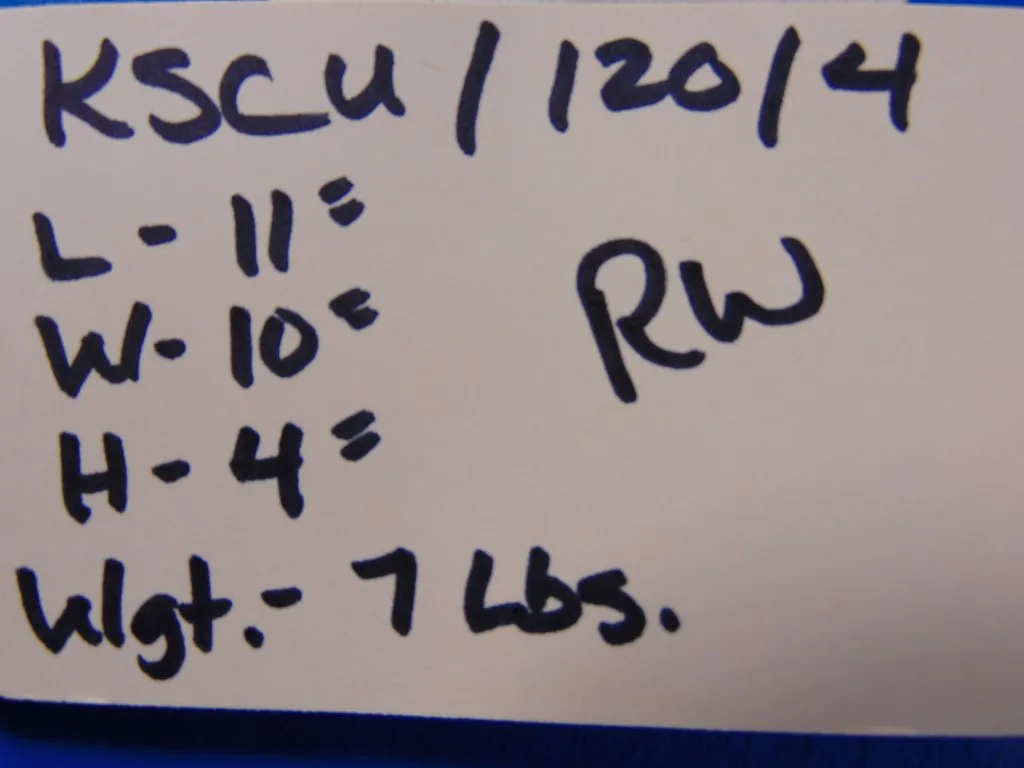 KSCU/120/4
L - 11"
W - 10"
RW
H - 4"
Wgt. - 7 Lbs.